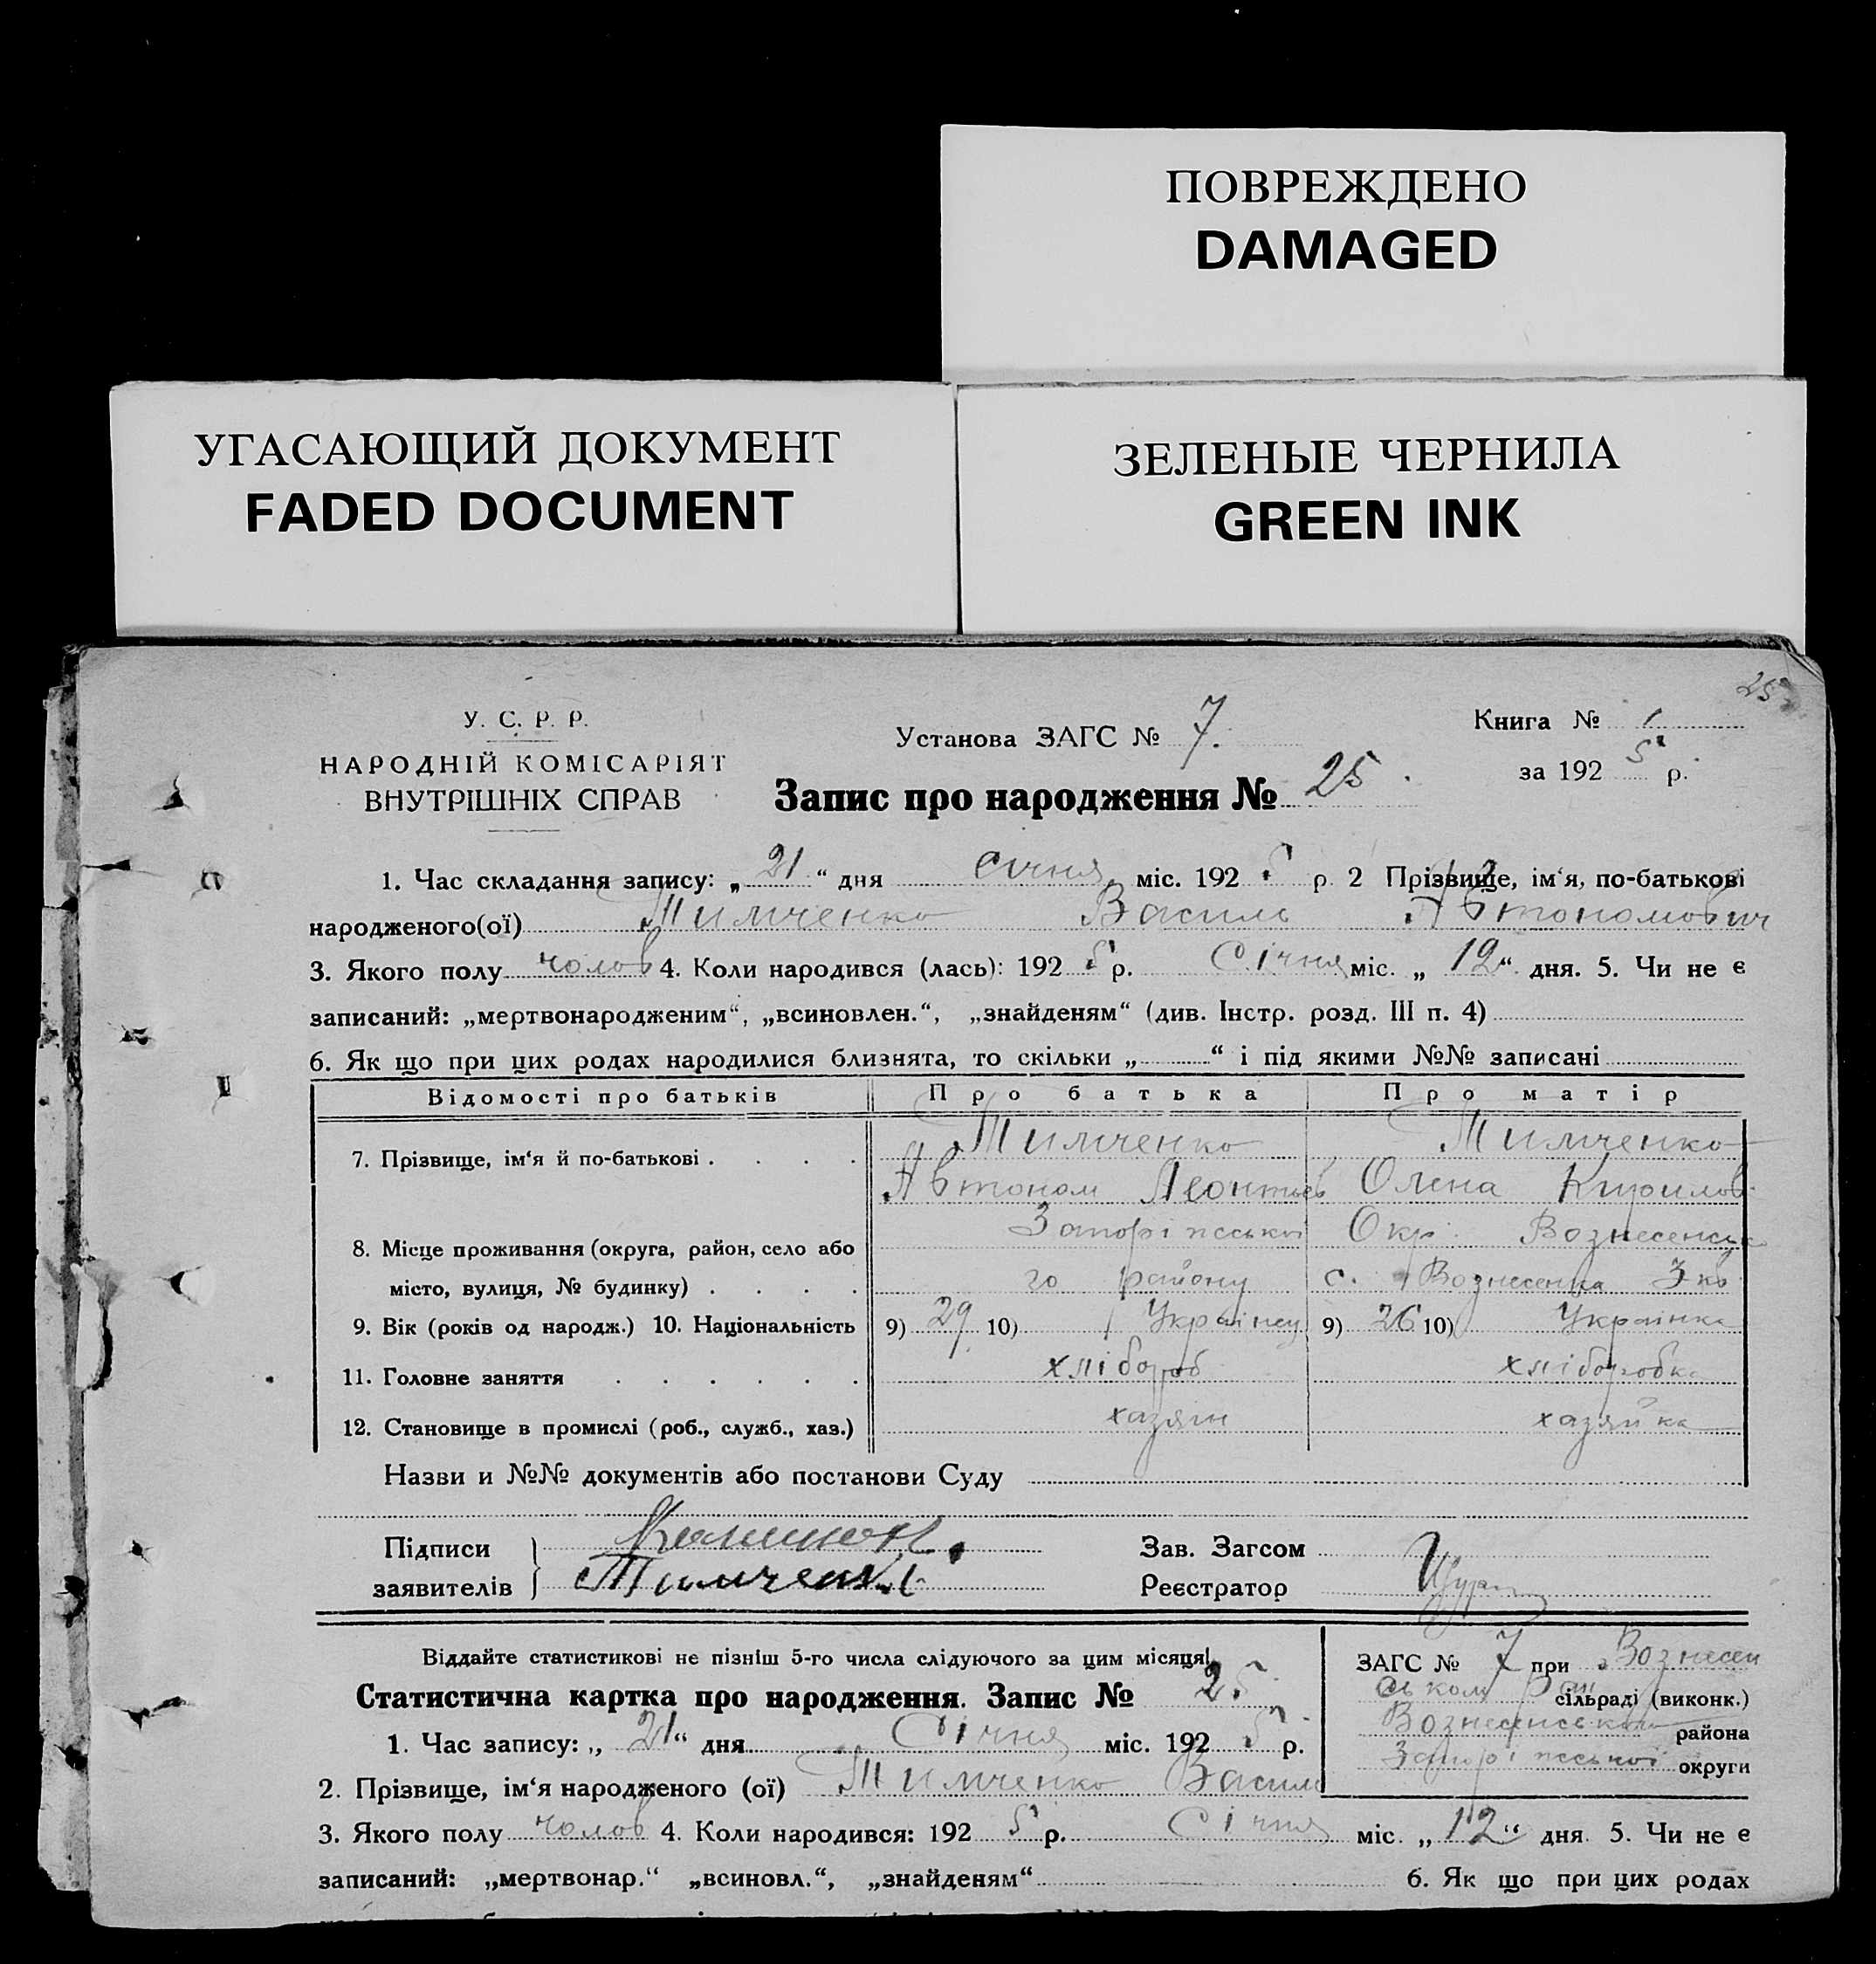 ПОВРЕЖДЕНО
DAMAGED
УГАСАЮЩИЙ ДОКУМЕНТ
FADED DOCUMENT
ЗЕЛЕНЫЕ ЧЕРНИЛА
GREEN INK
25
У. С. Р. Р.
НАРОДНІЙ КОМІСАРІЯТ
ВНУТРІШНІХ СПРАВ
Установа ЗАГС № 7.
Запис про народження № 25.
Книга № 1
за 1925 р.
1. Час складання запису: „21“ дня Січня міс. 1925 р. 2 Прізвище, ім‘я, по-батькові
народженого(ої) Тимченко Василь Автономович
3. Якого полу чолов 4. Коли народився (лась): 1925 р. Січня міс. „12“ дня. 5. Чи не є
записаний: „мертвонародженим“, „всиновлен.“, „знайденям“ (див. Інстр. розд. III п. 4)
6. Як що при цих родах народилися близнята, то скільки „ “ і під якими №№ записані
Відомості про батьків Про батька Про матір
7. Прізвище, ім‘я й по-батькові Тимченко Тимченко
Автоном Леонтьев Олена Кирилов
8. Місце проживання (округа, район, село або Запоріжської Окр. Вознесенсько
місто, вулиця, № будинку) го району с. Вознесенка
9. Вік (років од народж.) 10. Національність 9) 29 10) Українец 9) 26 10) Українка
11. Головне заняття хлібороб хліборобка
12. Становище в промислі (роб., служб., хаз.) хазяін хазяйка
Назви и №№ документів або постанови Суду
Підписи
заявителів Тимченко
Зав. Загсом
Реєстратор
Віддайте статистикові не пізніш 5-го числа слідуючого за цим місяця!
Статистична картка про народження. Запис № 25
ЗАГС № 7 при Вознесен
ськом сільраді (виконк.)
Вознесенського района
Запоріжської округи
1. Час запису: „21“ дня Січня міс. 1925 р.
2. Прізвище, ім‘я народженого (ої) Тимченко Василь
3. Якого полу чолов 4. Коли народився: 1925 р. Січня міс. „12“ дня. 5. Чи не є
записаний: „мертвонар.“ „всиновл.“, „знайденям“ 6. Як що при цих родах